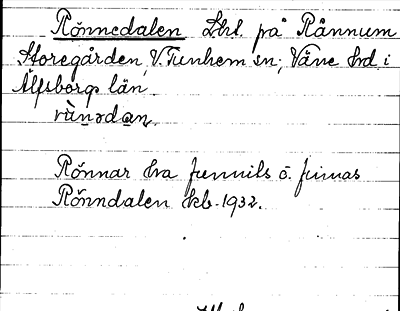 Rönnedalen Lht. på Rånnum
Storegården, V. Tunhem sn; Väne hd i
Älfsborgs län
rǜnədɑn,
Rönnar ha funnits o. finnas
Rönndalen Ekb. 1932.